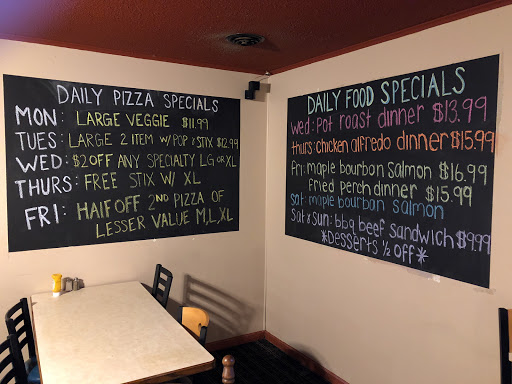 DAILY PIZZA SPECIALS
MON: LARGE VEGGIE $11.99
TUES: LARGE 2 ITEM W/POP & STIX $12.99
WED: $2 OFF ANY SPECIALTY LG OR XL
THURS: FREE STIX W/ XL
FRI: HALF OFF 2ND PIZZA OF
LESSER VALUE M, L, XL
DAILY FOOD SPECIALS
wed: pot roast dinner $13.99
thurs: chicken alfredo dinner $15.99
fri: maple bourbon salmon $16.99
fried perch dinner $15.99
sat: maple bourbon salmon
Sat & Sun: bbq beef sandwich $9.99
*Desserts ½ off*